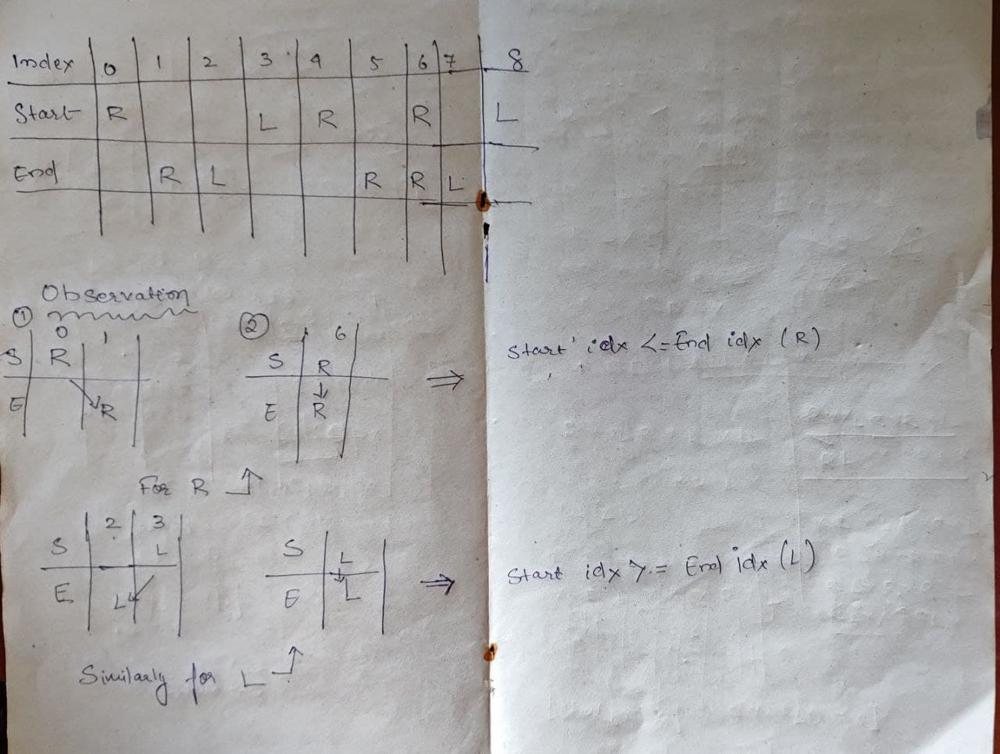 Index 0 1 2 3 4 5 6 7 8
Start R L R R L
End R L R R L
Observation
① ②
0 1 6
S R S R
E R E R
⇒ Start idx <= End idx (R)
For R
2 3
S L S L
E L E L
⇒ Start idx >= End idx (L)
Similarly for L